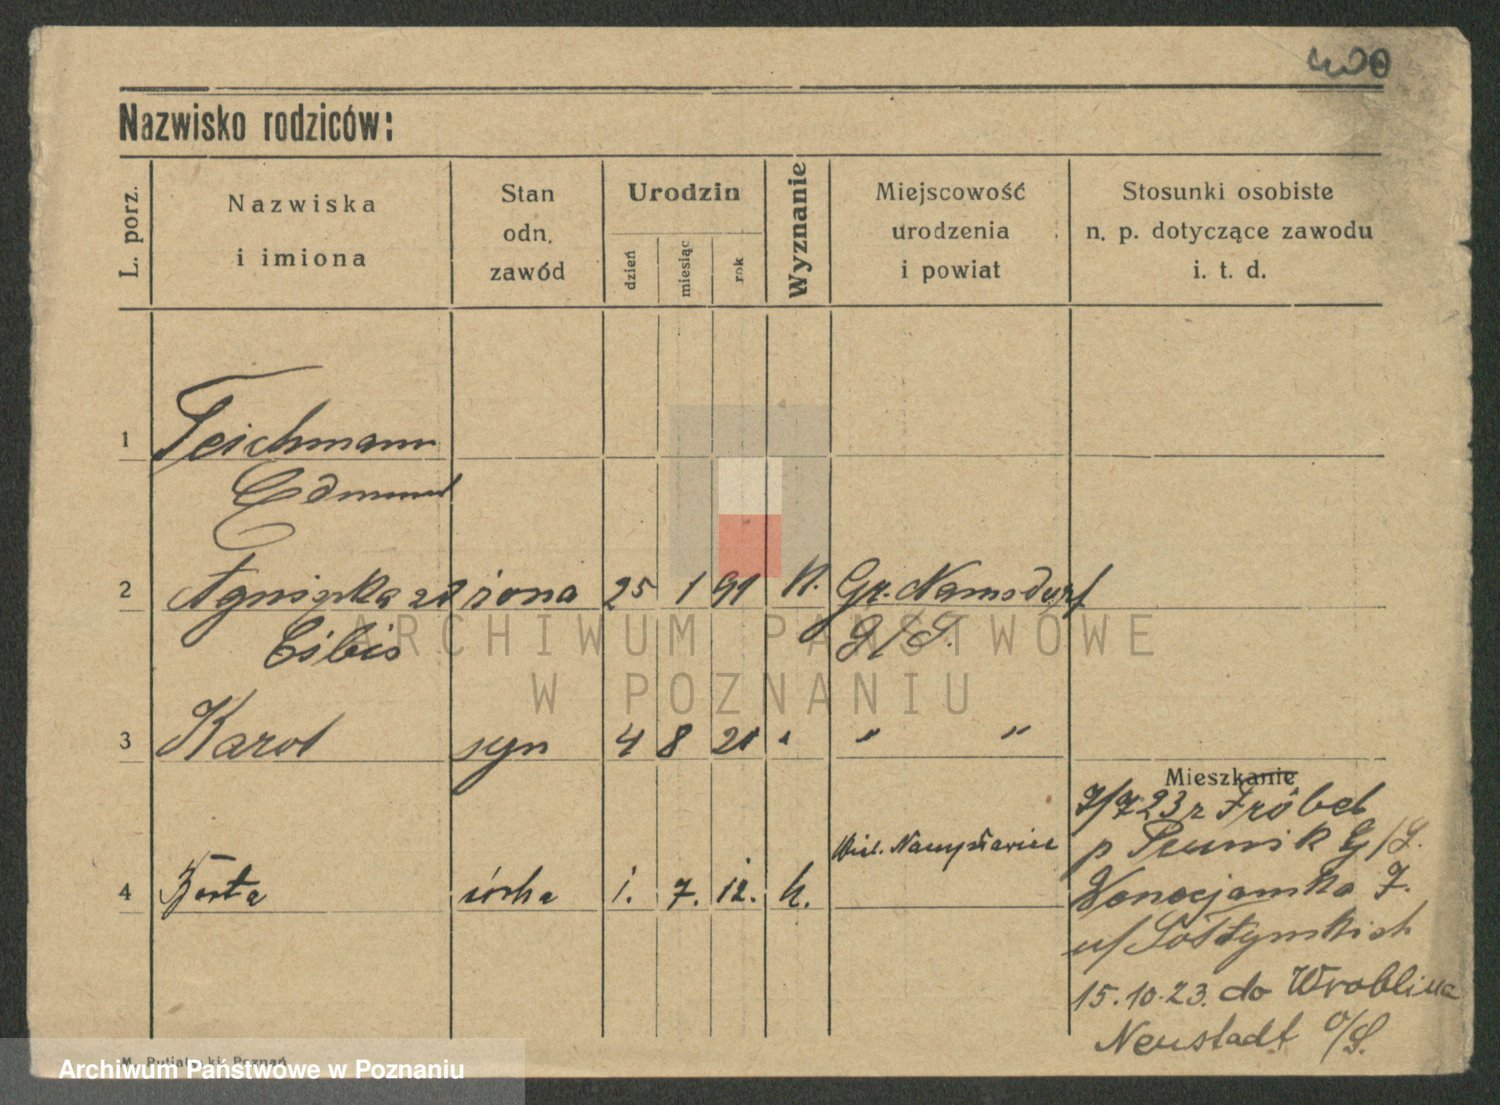 400
Nazwisko rodziców:
L. porz.
Nazwiska
i imiona
Stan
odn.
zawód
Urodzin
dzień
miesiąc
rok
Wyznanie
Miejscowość
urodzenia
i powiat
Stosunki osobiste
n. p. dotyczące zawodu
i. t. d.
1 Teichmann
Edmund
2 Agnieszka zd żona 25 1 91 K. Gr. Namsdorf
Cibis G/S.
3 Karol syn 4 8 21 " " "
Mieszkanie
7/7 23 z Fröbel
p G/S.
4 Berta córka 1. 7. 12. k. Wiel. Namysławice
Wenecjanska 7.
u/ Sołtyńskich
15.10.23. do Wroblina
Neustadt O/S.
ARCHIWUM PAŃSTWOWE
W POZNANIU
Archiwum Państwowe w Poznaniu